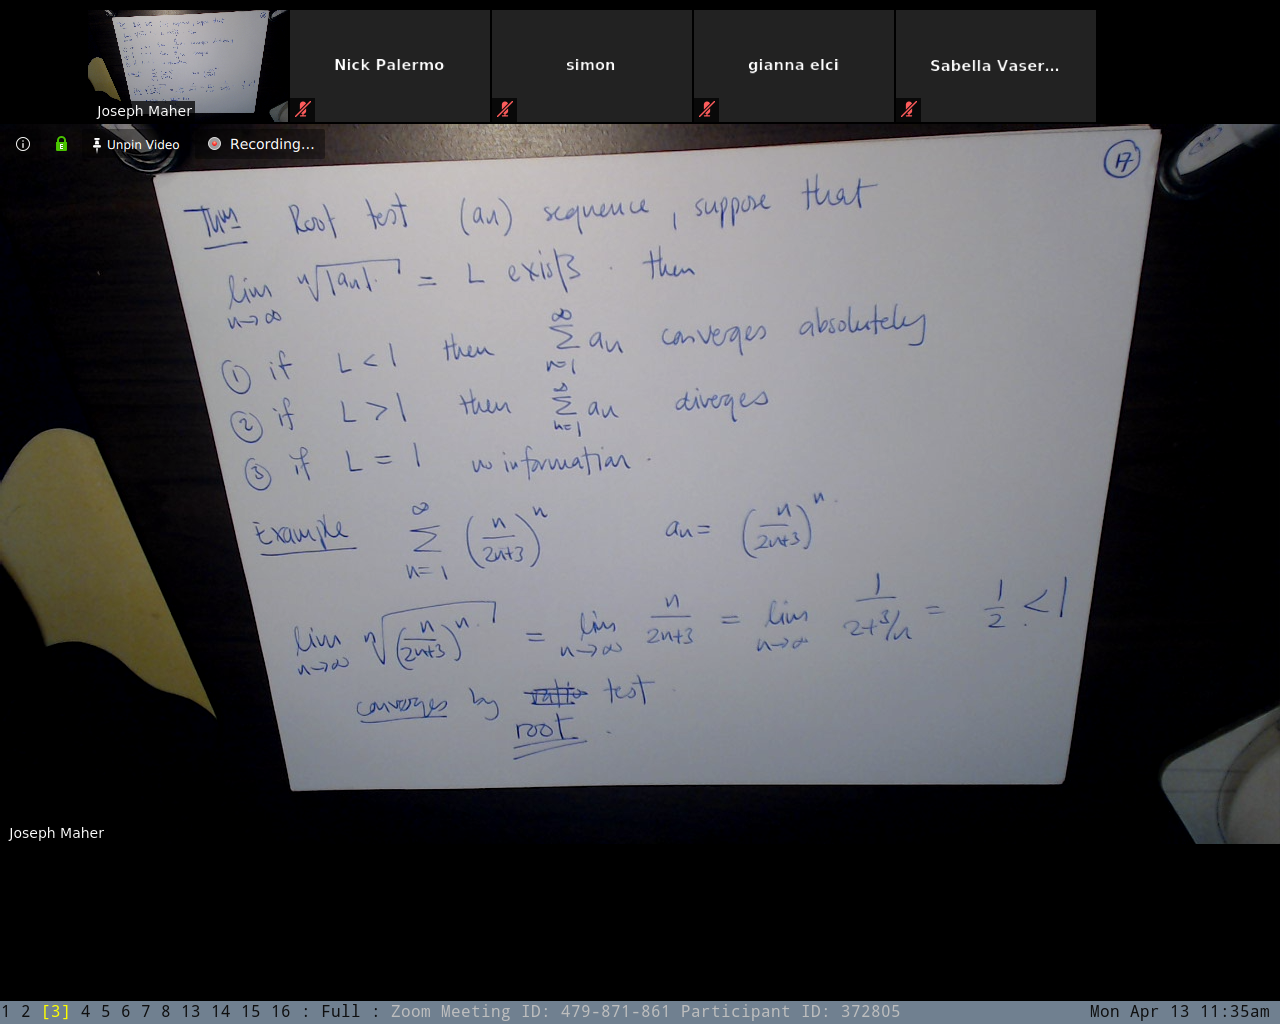 Joseph Maher
Nick Palermo
simon
gianna elci
Sabella Vaser...
Unpin Video
Recording...
17
Thm Root test (an) sequence, suppose that
lim n→∞ ⁿ√|an| = L exists. then
① if L < 1 then ∞ Σ n=1 an converges absolutely
② if L > 1 then ∞ Σ n=1 an diverges
③ if L = 1 no information.
Example ∞ Σ n=1 (n/2n+3)ⁿ an = (n/2n+3)ⁿ.
lim n→∞ ⁿ√(n/2n+3)ⁿ = lim n→∞ n/2n+3 = lim n→∞ 1/2+3/n = 1/2 < 1.
converges by ratio test
root.
Joseph Maher
1 2 [3] 4 5 6 7 8 13 14 15 16 : Full : Zoom Meeting ID: 479-871-861 Participant ID: 372805 Mon Apr 13 11:35am